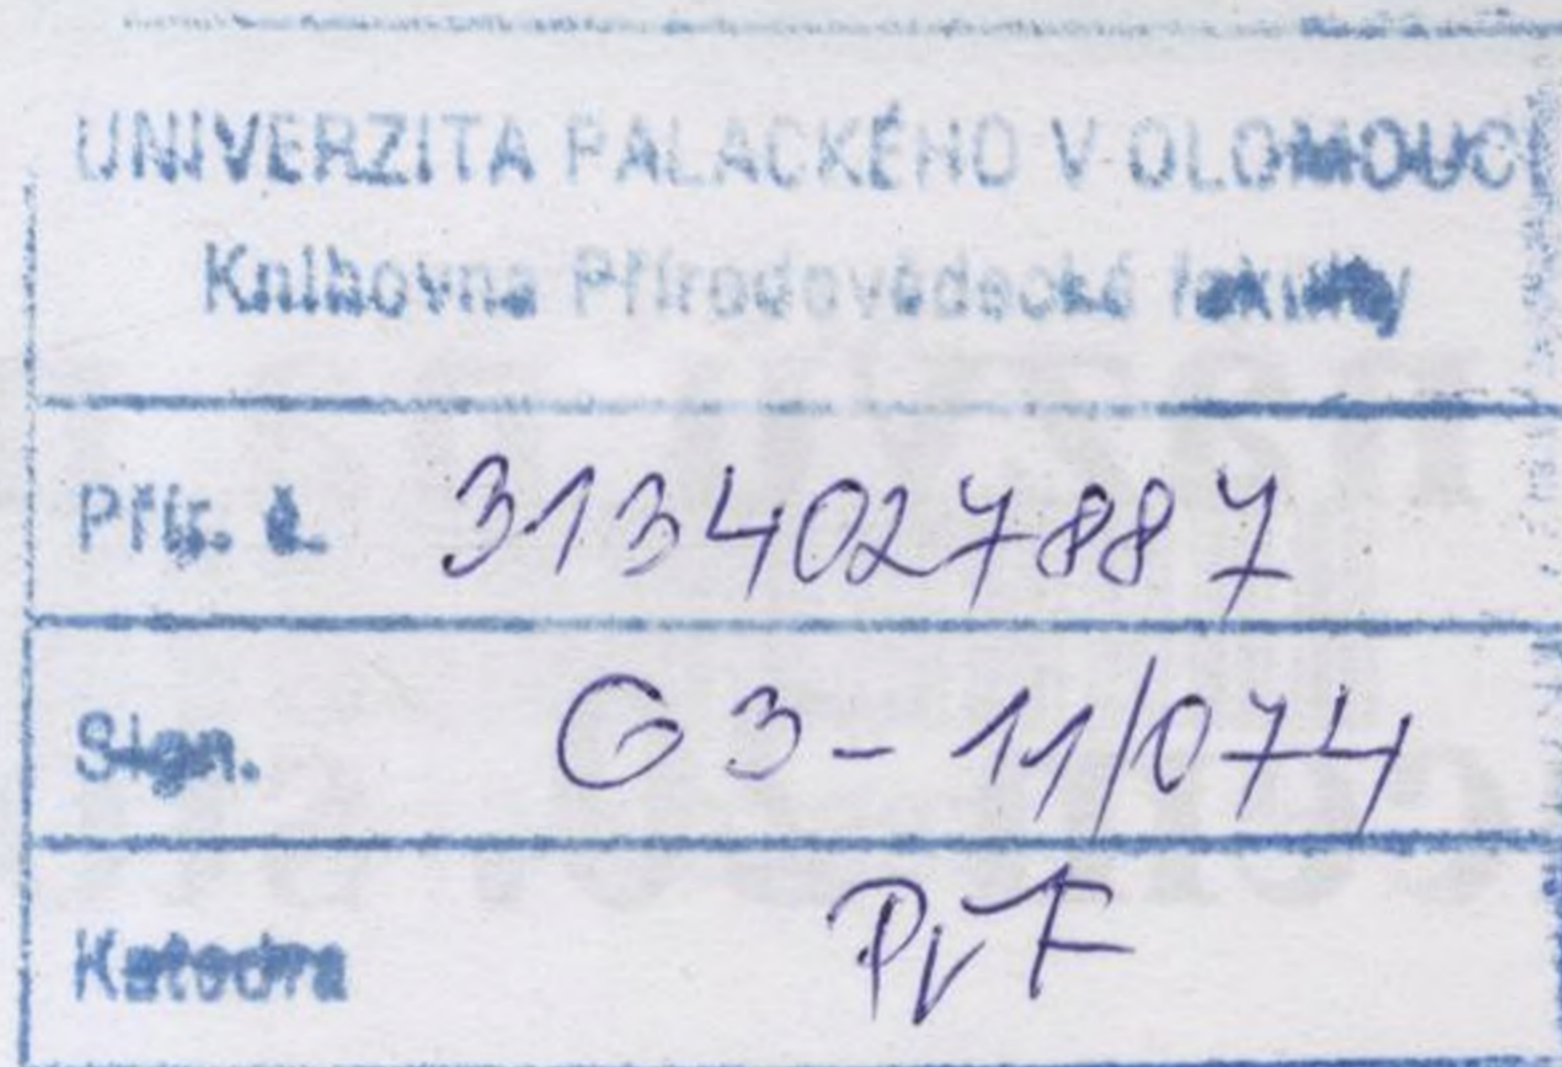 UNIVERZITA PALACKÉHO V OLOMOUCI
Knihovna Přírodovědecké fakulty
Přír. č. 3134027887
Sign. G3-11/074
Katedra PřF